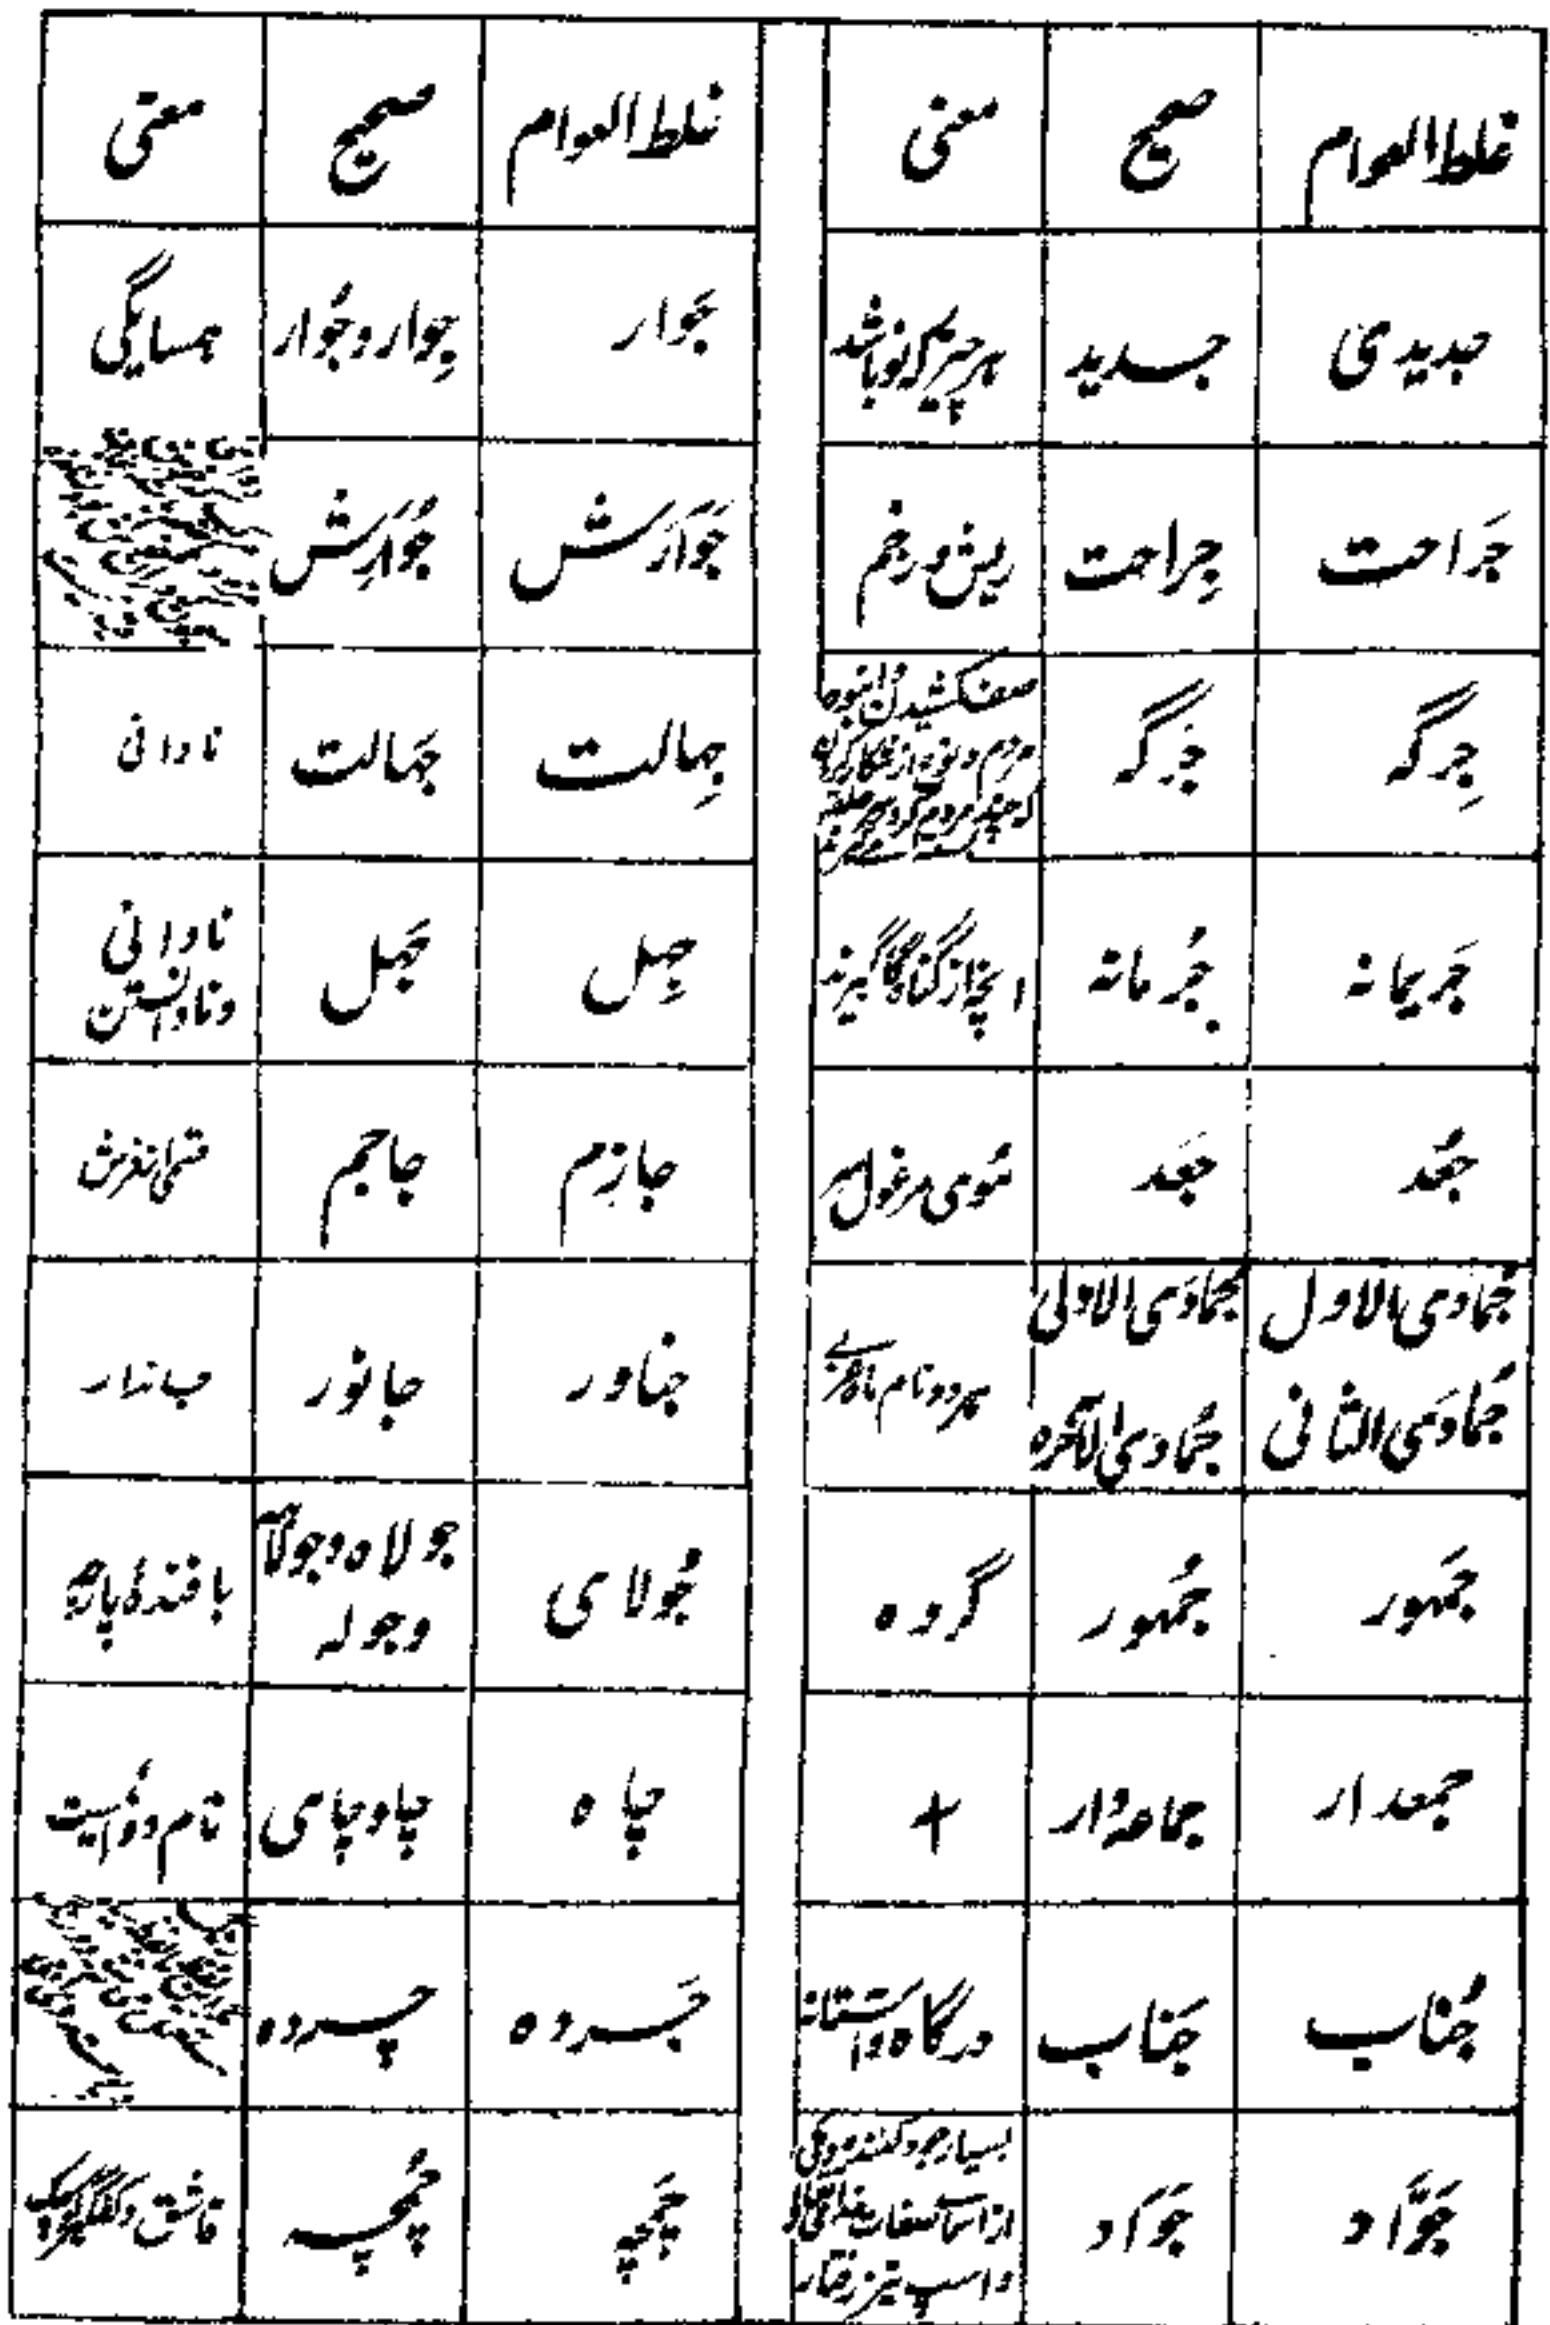 غلط العوام صحیح معنی
جدیدی جدید ہر چیزیکہ نو باشد
جَراحت جِراحت ریش و زخم
جِرگہ جَرگہ صف کشیدن انبوہ مردم
جَریمانہ جُرمانہ انچہ از گناہگار گیرند
جُعُد جَعد موی مرغول
جُمادی الاول جُمادَی الاولی ہر دو نام ماہ
جُمادَی الثانی جُمادی الآخرہ
جَمہور جُمہور گروہ
جمعدار جماعہ دار +
جُناب جَناب درگاہ و آستانہ
جَوَّاد جَوَاد بسیار جود کنندہ
و اسپ تیز رفتار
غلط العوام صحیح معنی
جَوار جِوار و جُوار ہمسایگی
جَوَارَش جُوَارِش
جِہالت جَہالت نادانی
جِہل جَہل نادانی
و نادانستن
جازِم جاجم قسمی از فرش
جناور جانور جاندار
جُولای جولاہ و جولاہہ بافندۂ پارچہ
و جولہ
چاہ چا و چای نام دوائیست
جَردہ چردہ
چَمچہ چُمچہ قاشق و کفگیر کوچک